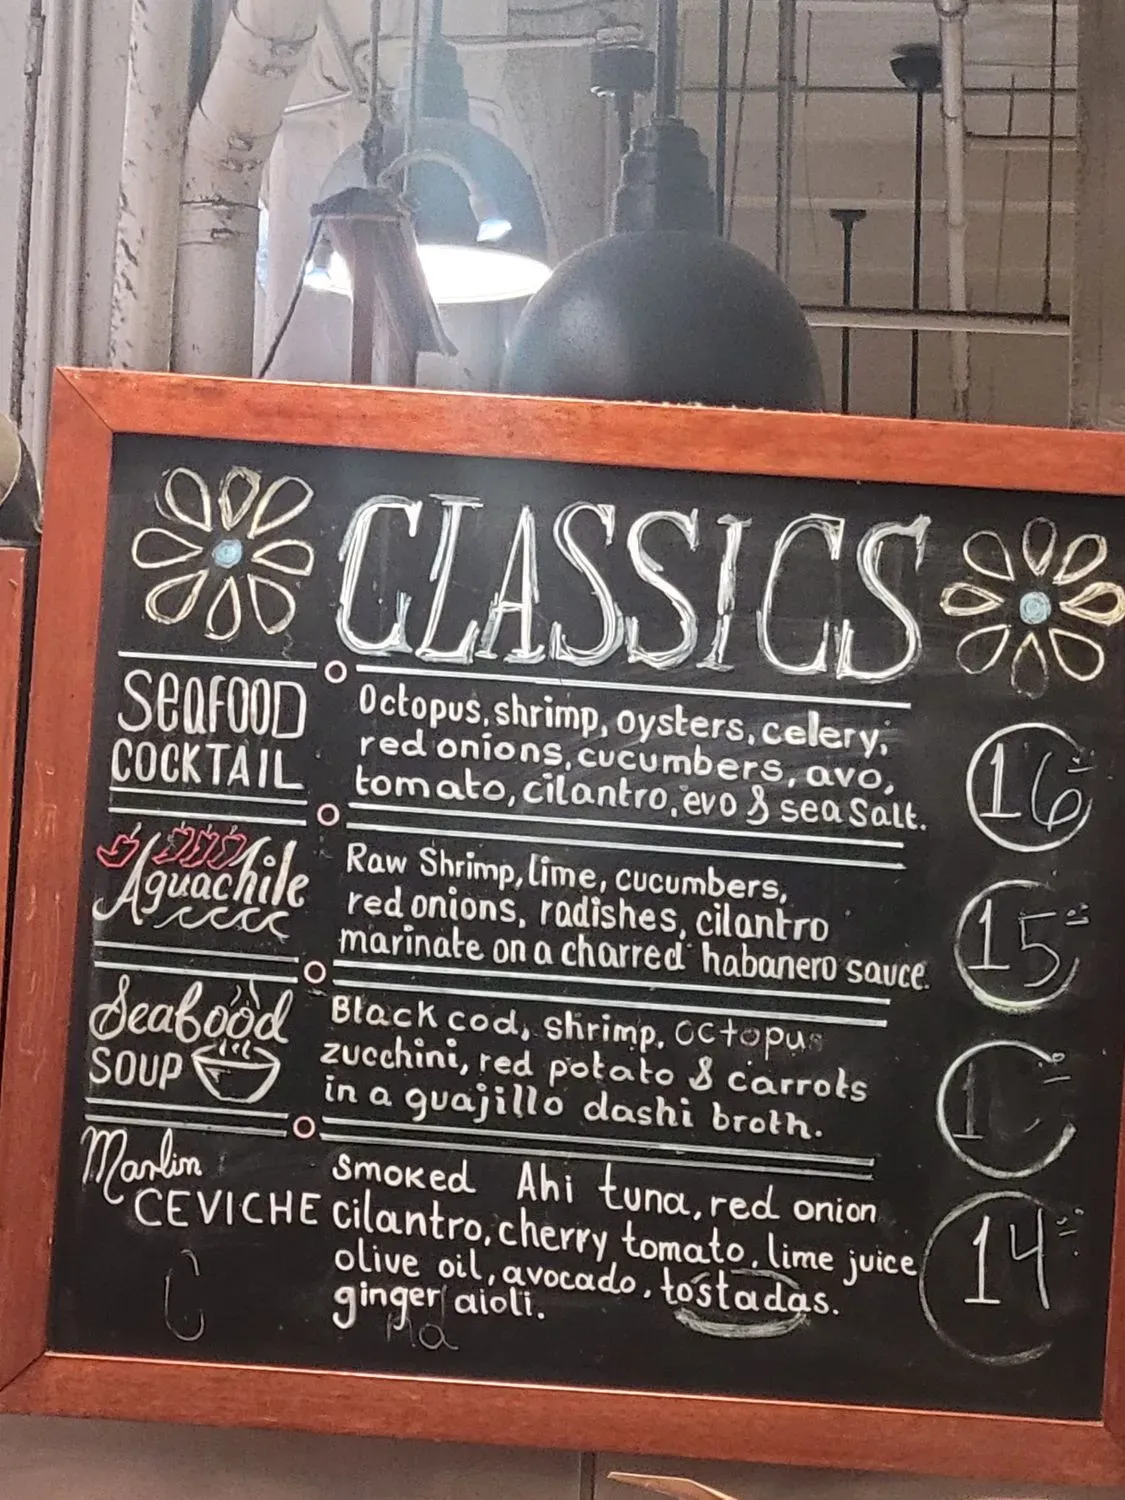 CLASSICS
SEAFOOD
COCKTAIL
Octopus, shrimp, oysters, celery,
red onions, cucumbers, avo,
tomato, cilantro, evo & sea Salt.
16
Aguachile
Raw Shrimp, lime, cucumbers,
red onions, radishes, cilantro
marinate on a charred habanero sauce.
15
Seafood
SOUP
Black cod, shrimp, octopus
zucchini, red potato & carrots
in a guajillo dashi broth.
Marlin
CEVICHE
smoked Ahi tuna, red onion
cilantro, cherry tomato, lime juice
olive oil, avocado, tostadas.
ginger aioli.
14